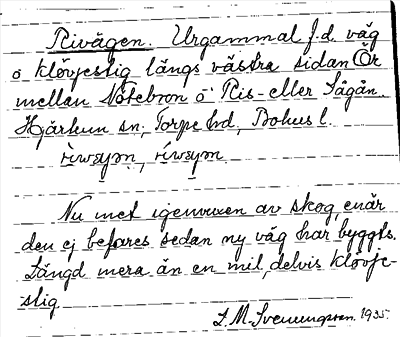 Rivägen. Urgammal f.d. väg
o klövjestig längs västra sidan Ör
mellan Nötebron o Ris- eller Sågån.
Hjärtum sn, Torpe hd, Bohus l.
Nu mest igenvuxen av skog, enär
den ej befares sedan ny väg har byggts.
Längd mera än en mil, delvis klövje-
stig
L.M. Svenungsson. 1935.